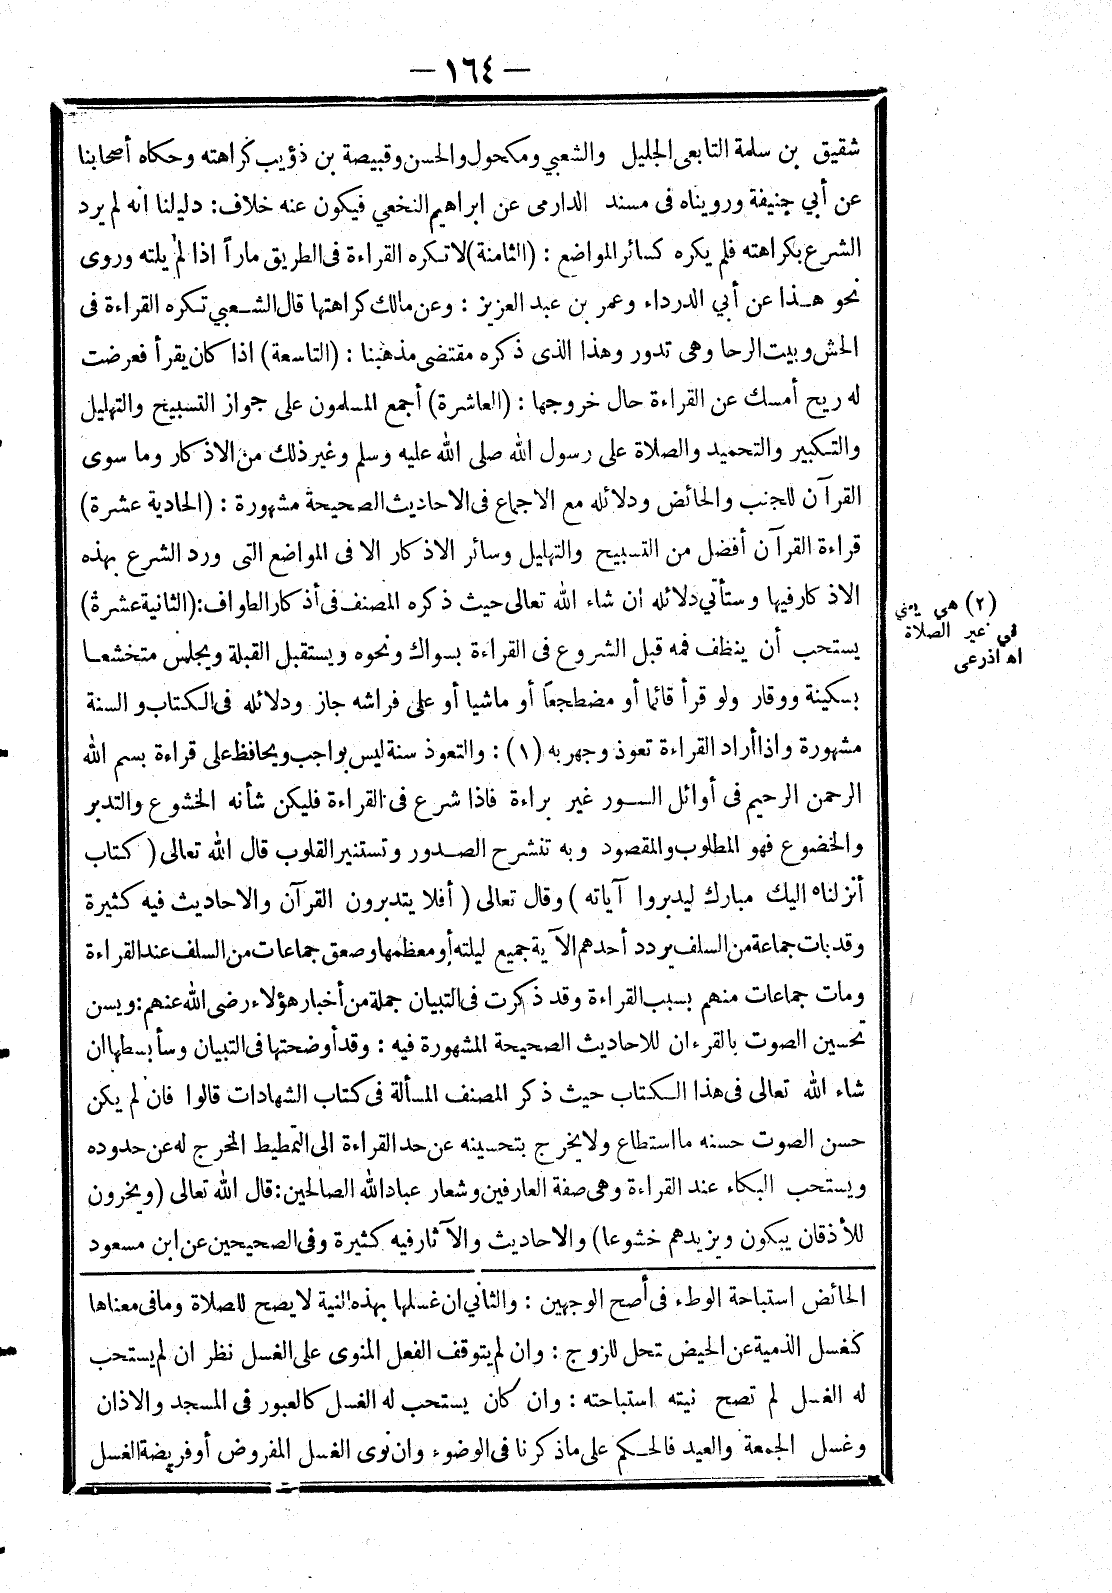 — ١٦٤ —
شقيق بن سلمة التابعى الجليل والشعبي ومكحول والحسن وقبيصة بن ذؤيب كراهته وحكاه أصحابنا
عن أبي حنيفة ورويناه فى مسند الدارمى عن ابراهيم النخعي فيكون عنه خلاف: دليلنا انه لم يرد
الشرع بكراهته فلم يكره كسائر المواضع : (الثامنة) لا تكره القراءة فى الطريق ماراً اذا لم يلته وروى
نحو هذا عن أبي الدرداء وعمر بن عبد العزيز : وعن مالك كراهتها قال الشعبي تكره القراءة فى
الحش وبيت الرحا وهى تدور وهذا الذى ذكره مقتضى مذهبنا : (التاسعة) اذا كان يقرأ فعرضت
له ريح أمسك عن القراءة حال خروجها : (العاشرة) أجمع المسلمون على جواز التسبيح والتهليل
والتكبير والتحميد والصلاة على رسول الله صلى الله عليه وسلم وغير ذلك من الاذكار وما سوى
القرآن للجنب والحائض ودلائله مع الاجماع فى الاحاديث الصحيحة مشهورة : (الحادية عشرة)
قراءة القرآن أفضل من التسبيح والتهليل وسائر الاذكار الا فى المواضع التى ورد الشرع بهذه
الاذكار فيها وستأتي دلائله ان شاء الله تعالى حيث ذكره المصنف فى أذكار الطواف: (الثانية عشرة)
يستحب أن ينظف فمه قبل الشروع فى القراءة بسواك ونحوه ويستقبل القبلة ويجلس متخشعا
بسكينة ووقار ولو قرأ قائما أو مضطجعاً أو ماشيا أو على فراشه جاز ودلائله فى الكتاب والسنة
مشهورة واذا أراد القراءة تعوذ وجهر به (١) : والتعوذ سنة ليس بواجب ويحافظ على قراءة بسم الله
الرحمن الرحيم فى أوائل السور غير براءة فاذا شرع فى القراءة فليكن شأنه الخشوع والتدبر
والخضوع فهو المطلوب والمقصود وبه تنشرح الصدور وتستنير القلوب قال الله تعالى ( كتاب
أنزلناه اليك مبارك ليدبروا آياته ) وقال تعالى ( أفلا يتدبرون القرآن والاحاديث فيه كثيرة
وقد بات جماعة من السلف يردد أحدهم الآية جميع ليلته أو معظمها وصعق جماعات من السلف عند القراءة
ومات جماعات منهم بسبب القراءة وقد ذكرت فى التبيان جملة من أخبار هؤلاء رضى الله عنهم: ويسن
تحسين الصوت بالقرءان للاحاديث الصحيحة المشهورة فيه : وقد أوضحتها فى التبيان وسأبسطها ان
شاء الله تعالى فى هذا الكتاب حيث ذكر المصنف المسألة فى كتاب الشهادات قالوا فان لم يكن
حسن الصوت حسنه ما استطاع ولا يخرج بتحسينه عن حد القراءة الى التمطيط المخرج له عن حدوده
ويستحب البكاء عند القراءة وهى صفة العارفين وشعار عباد الله الصالحين: قال الله تعالى (ويخرون
للأذقان يبكون ويزيدهم خشوعا) والاحاديث والآثار فيه كثيرة وفى الصحيحين عن ابن مسعود
(٢) هي يمني
في غير الصلاة
اه اذرعى
الحائض استباحة الوطء فى أصح الوجهين : والثاني ان غسلها بهذه النية لا يصح للصلاة وما فى معناها
كغسل الذمية عن الحيض تحل للزوج : وان لم يتوقف الفعل المنوى على الغسل نظر ان لم يستحب
له الغسل لم تصح نيته استباحته : وان كان يستحب له الغسل كالعبور فى المسجد والاذان
وغسل الجمعة والعيد فالحكم على ما ذكرنا فى الوضوء وان نوى الغسل المفروض أو فريضة الغسل